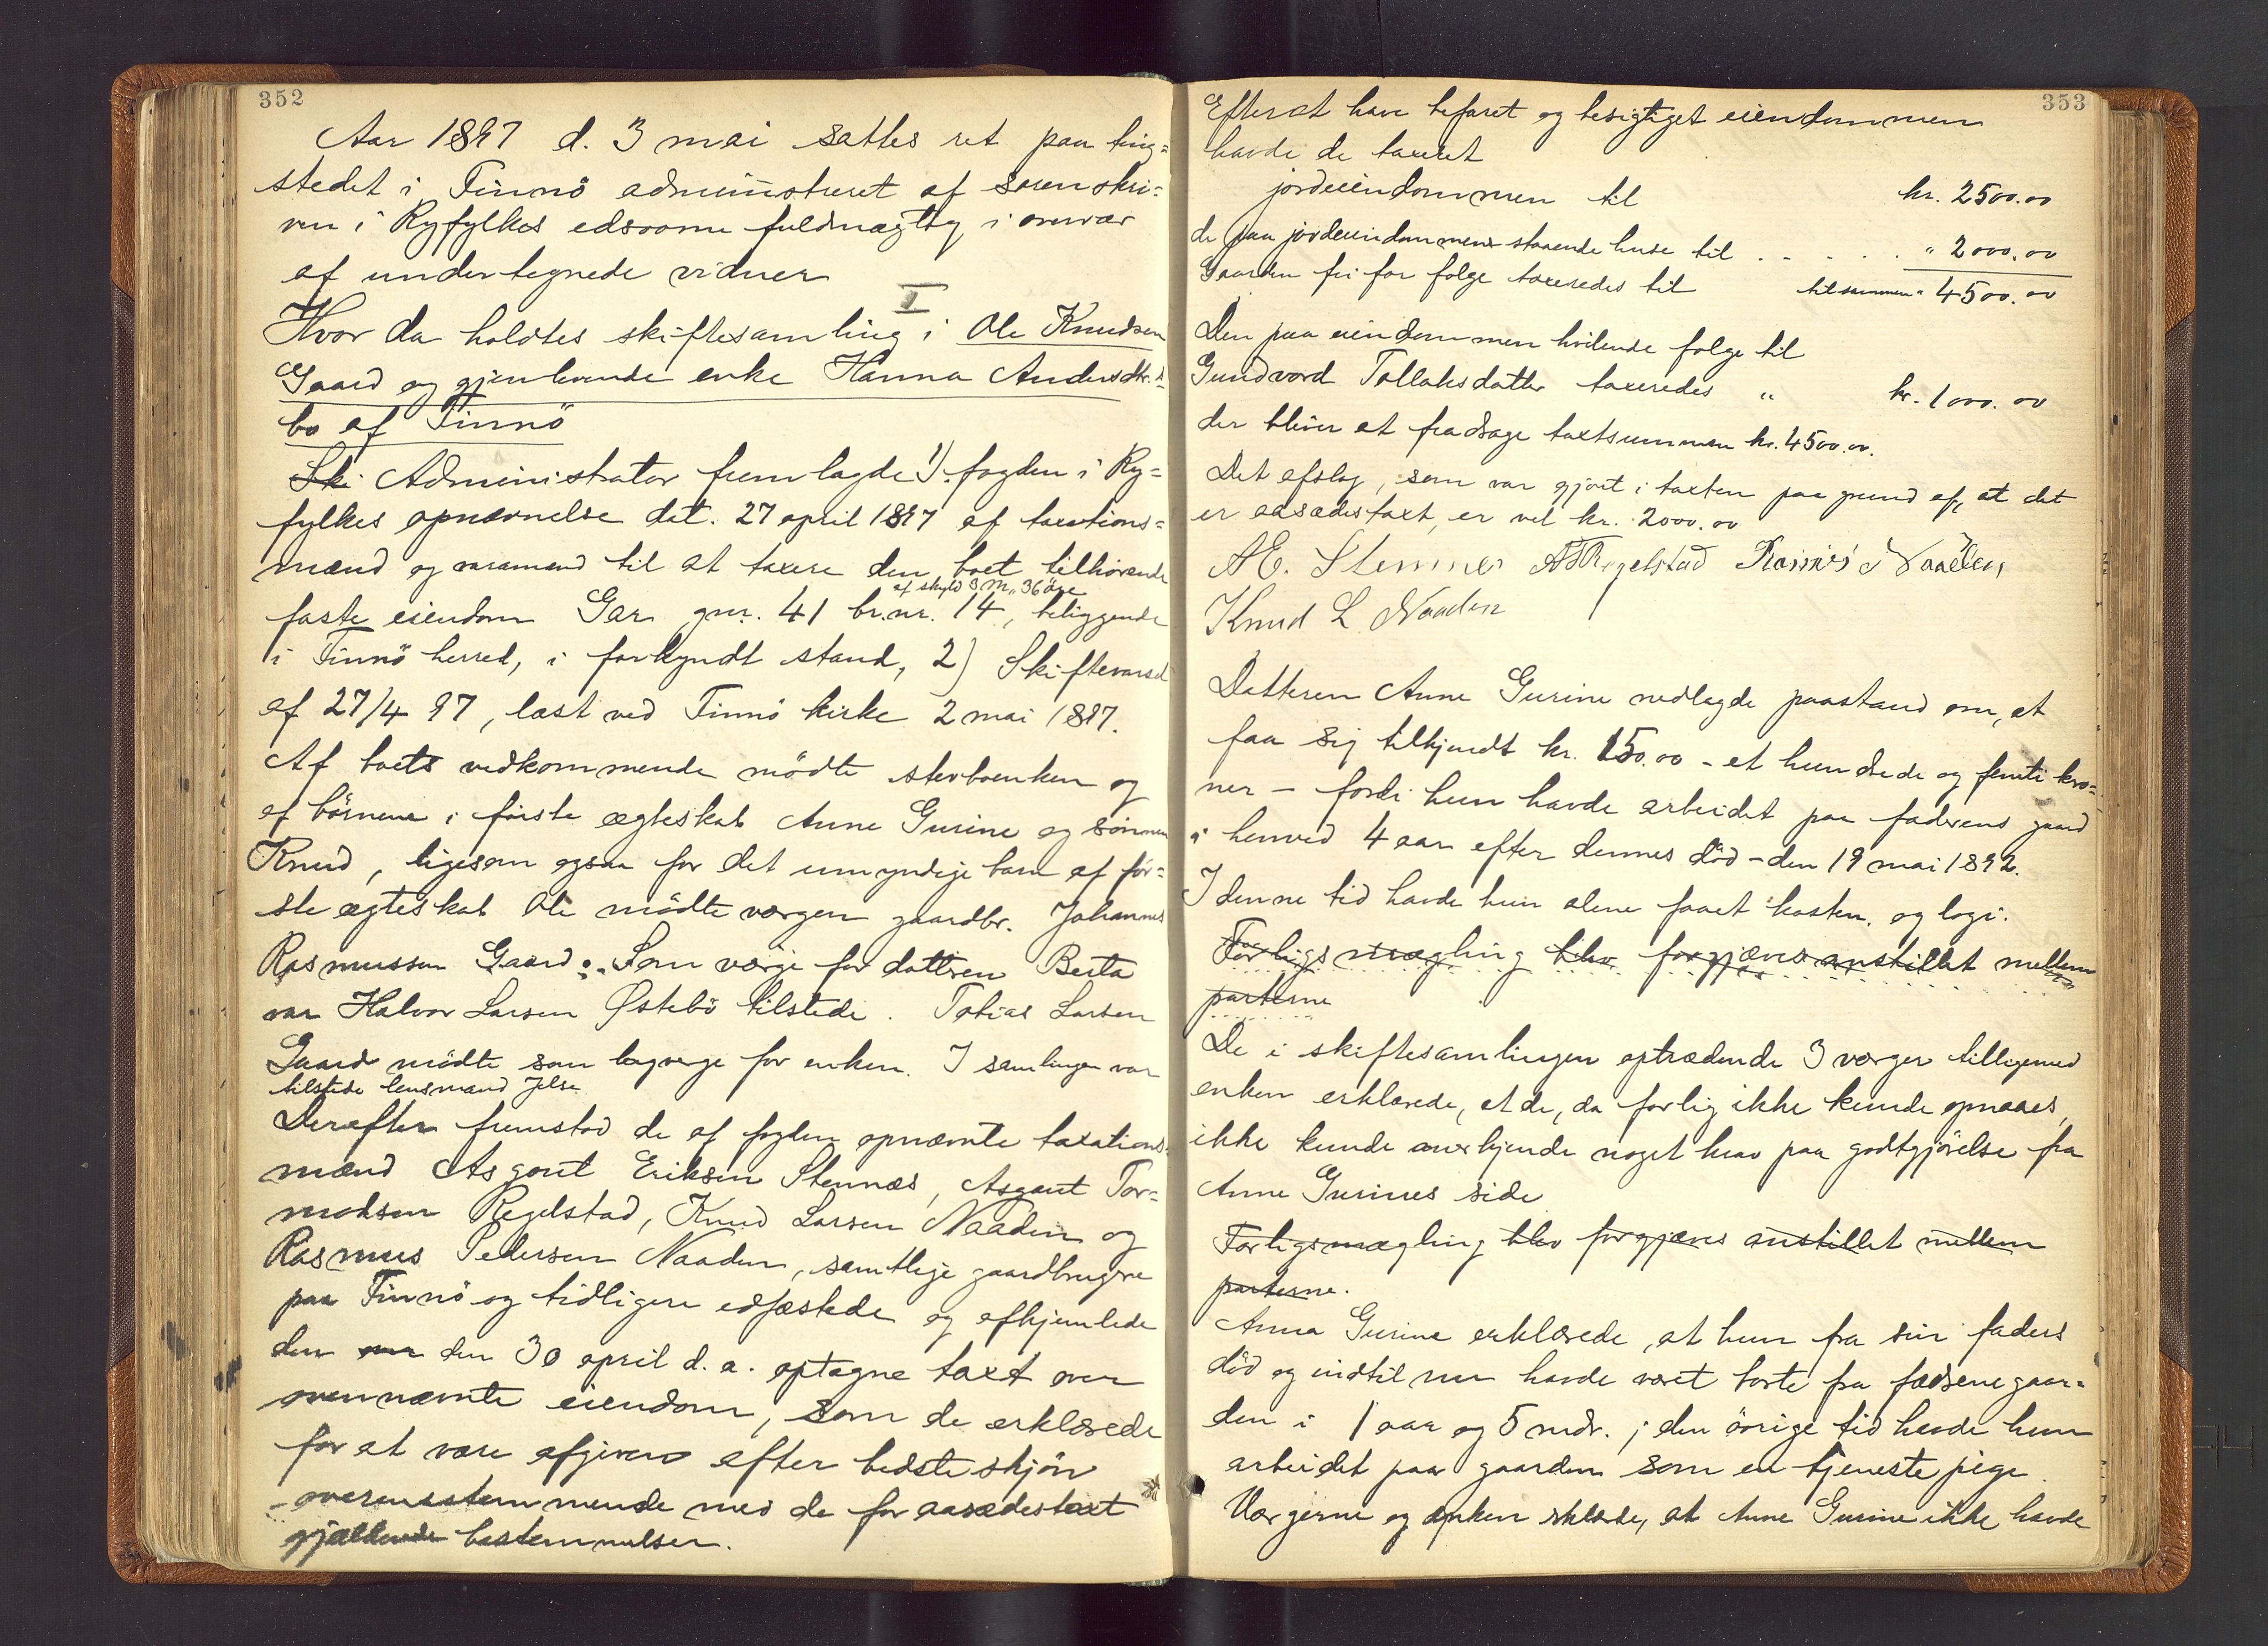 352
Aar 1897 d. 3 mai sattes ret paa ting=
stedet i Finnö administreret af sorenskri=
ver i Ryfylkes edsvorne fuldmægtig i overvær
af undertegnede vidner
I
Hvor da holdtes skiftesamling i Ole Knudsen
Gaard og gjenlevende enke Hanna Andersdtr.s
bo af Finnö
Ski Administrator fremlagde 1) fogden i Ry=
fylkes opnævnelse dat. 27 april 1897 af taxations=
mænd og varamænd til at taxere den boet tilhörende
af skyld 3 M. 36 öre
faste eiendom Gar gnr. 41 br.nr. 14, beliggende
i Finnö herred, i forkyndt stand, 2) Skiftevarsel
af 27/4 97, læst ved Finnö kirke 2 mai 1897.
Af boets vedkommende mödte stervboenken og
af börnene i förste ægteskab Anne Gurine og sönnen
Knud, ligesom ogsaa for det umyndige barn af för=
ste ægteskab Ole mödte værgen gaardbr. Johannes
Rasmussen Gaard. Som værge for datteren Berta
var Halvor Larsen Østebö tilstede. Tobias Larsen
Gaard mödte som lagværge for enken. I samlingen var
tilstede lensmand Jelsa
Derefter fremstod de af fogden opnævnte taxations=
mænd Asgout Eriksen Stennæs, Asgaut Tor=
modsen Regelstad, Knud Larsen Naaden og
Rasmus Pedersen Naaden, samtlige gaardbrugere
paa Finnö og tidligere edfæstede og afhjemlede
den den 30 april d. a. optagne taxt over
ovennævnte eiendom, som de erklærede
for at være afgiven efter bedste skjön
overensstemmende med de for aasædestaxt
gjældende bestemmelser.
353
Efterat have befaret og besigtiget eiendommen
havde de taxeret
jordeiendommen til kr. 2500.00
de paa jordeiendommen staaende huse til . . . . . " 2000.00
Gaarden fri for folge taxeredes til tilsammen " 4500.00
Den paa eiendommen hvilende folge til
Gundvord Tollaksdatter taxeredes " kr. 1000.00
der bliver at fradrage taxtsummen kr. 4500.00.
Det afslag, som var gjort i taxten paa grund af, at det
er aasædestaxt, er vel kr. 2000.00
A E. Stennes A T Regelstad Rasmus P Naaden
Knud L Naaden
Datteren Anne Gurine nedlagde paastand om, at
faa sig tilkjendt kr. 150.00 - et hundrede og femti kro=
ner - fordi hun havde arbeidet paa faderens gaard
i henved 4 aar efter dennes död - den 19 mai 1892.
I denne tid havde hun alene faaet kosten og logi.
Forligsmægling blev forgjæves anstillet mellem
parterne
De i skiftesamlingen optrædende 3 værger tilligemed
enken erklærede, at de, da forlig ikke kunde opnaaes,
ikke kunde anerkjende noget krav paa godtgjörelse fra
Anne Gurines side
Forligsmægling blev forgjæves anstillet mellem
parterne.
Anna Gurine erklærede, at hun fra sin faders
död og indtil nu havde været borte fra fædrenegaar=
den i 1 aar og 5 mdr.; den övrige tid havde hun
arbeidet paa gaarden som en tjenestepige.
Værgerne og enken erklærede, at Anne Gurine ikke havde